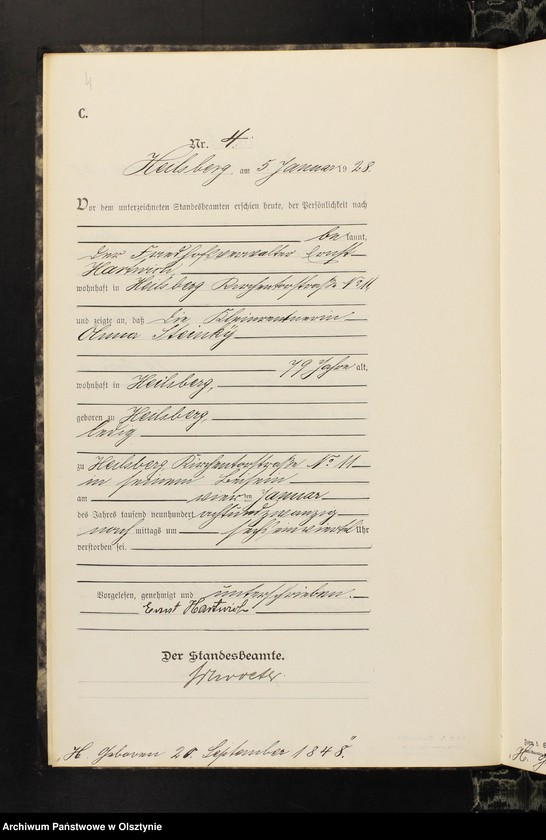 4
C.
Nr. 4
Heilsberg, am 5 Januar 1928.
Vor dem unterzeichneten Standesbeamten erschien heute, der Persönlichkeit nach
bekannt,
der Friedhofsverwalter Ernst
Hartwich,
wohnhaft in Heilsberg Kirchentorstraße No 11
und zeigte an, daß die Kleinrentnerin
Anna Steinky
79 Jahre alt,
wohnhaft in Heilsberg,
geboren zu Heilsberg,
ledig
zu Heilsberg Kirchentorstraße No 11
in seinem Beisein
am vier ten Januar
des Jahres tausend neunhundert achtundzwanzig
nach mittags um sechseinviertel Uhr
verstorben sei.
Vorgelesen, genehmigt und unterschrieben.
Ernst Hartwich
Der Standesbeamte.
„H. Geboren 20. September 1848."
Archiwum Państwowe w Olsztynie